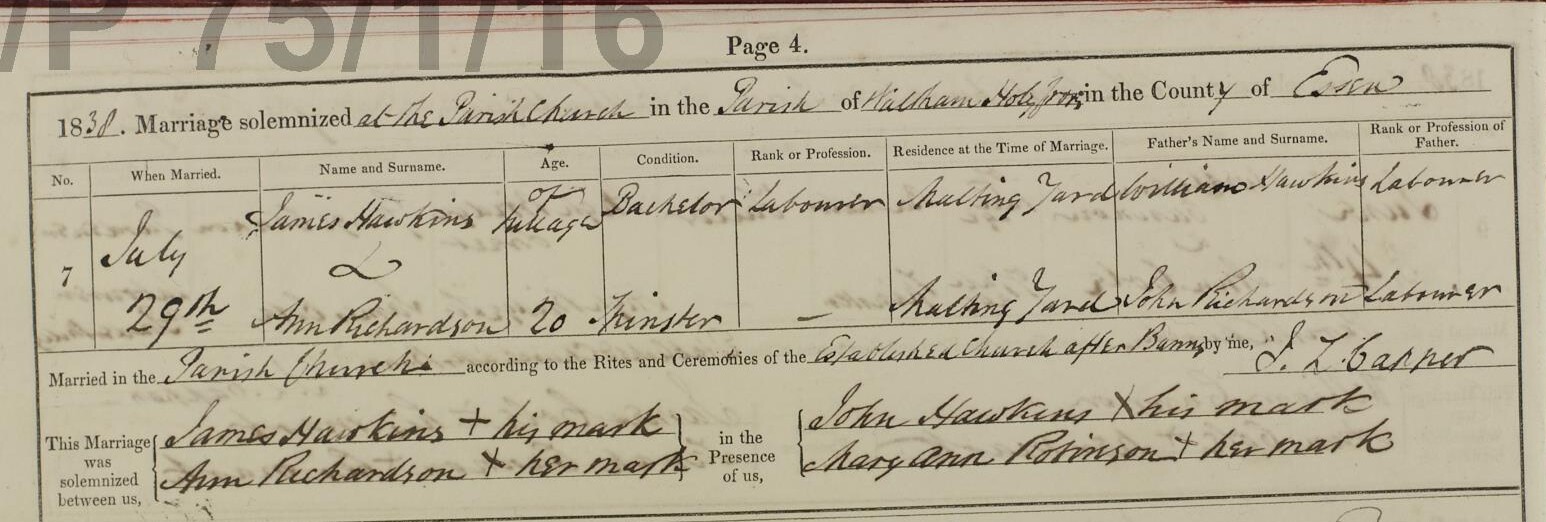 /P 75/1/16
Page 4.
1838. Marriage solemnized at the Parish Church in the Parish of Waltham Holy in the County of Essex
No. When Married. Name and Surname. Age. Condition. Rank or Profession. Residence at the Time of Marriage. Father's Name and Surname. Rank or Profession of Father.
James Hawkins of full age Bachelor Labourer Malting Yard William Hawkins Labourer
7 July
&
29th Ann Richardson 20 Spinster — Malting Yard John Richardson Labourer
Married in the Parish Church according to the Rites and Ceremonies of the Established Church after Banns by me, J. L. Capper
This Marriage was solemnized between us, James Hawkins + his mark in the Presence of us, John Hawkins X his mark
Ann Richardson X her mark Mary Ann Robinson + her mark